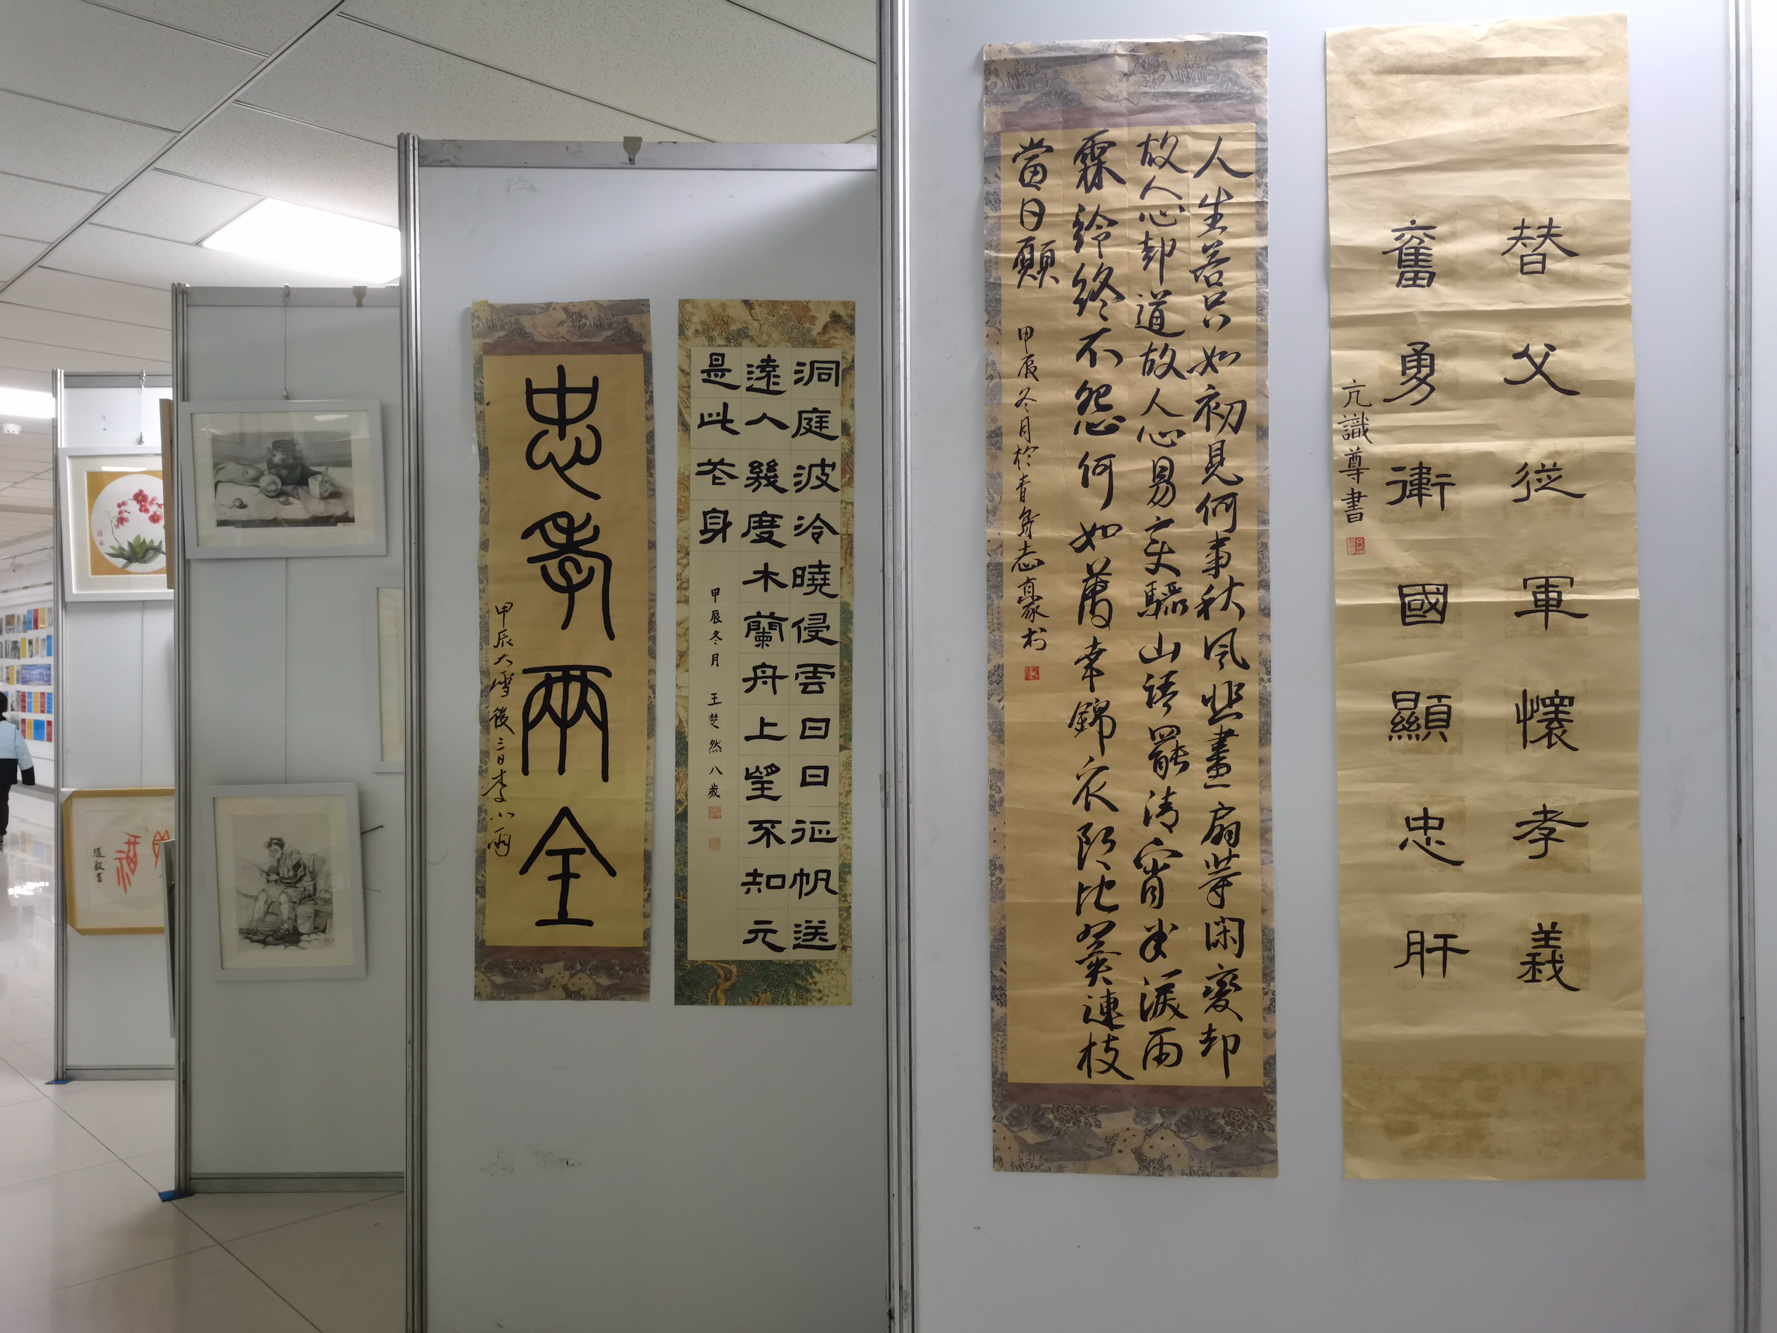 替父從軍懷孝義
奮勇衛國顯忠肝
亢識尊書
人生若只如初見何事秋風悲畫扇等閑變却
故人心却道故人心易变驪山語罷清宵半淚雨
霖鈴終不怨何如薄幸錦衣郎比翼連枝
當日願
甲辰冬月於青島志豪书
洞庭波冷曉侵雲日日征帆送
遠人幾度木蘭舟上望不知元
是此花身
甲辰冬月 王楚然八歲
忠孝兩全
甲辰大雪後三日李小雨